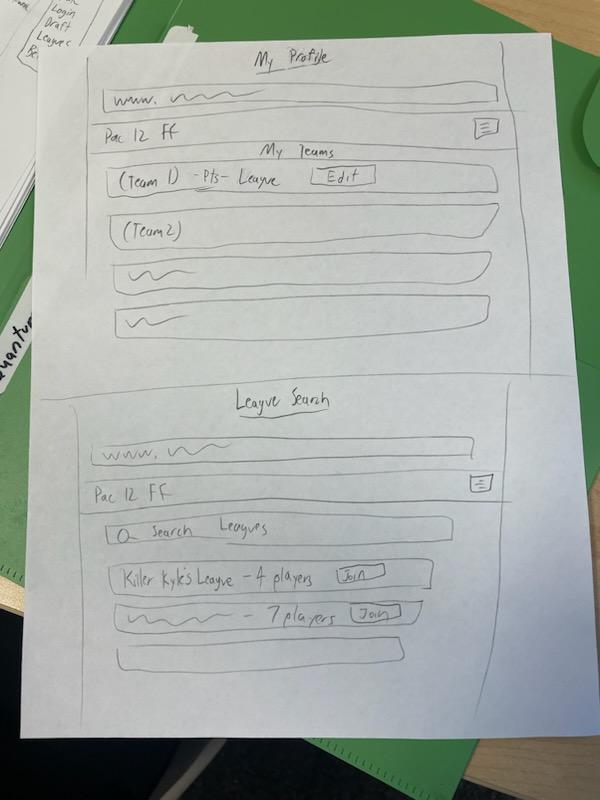 Login
Draft
Leagues
My Profile
www.
Pac 12 FF
My Teams
(Team 1) -Pts- League Edit
(Team 2)
League Search
www.
Pac 12 FF
Search Leagues
Killer Kyle's League - 4 players Join
- 7 players Join